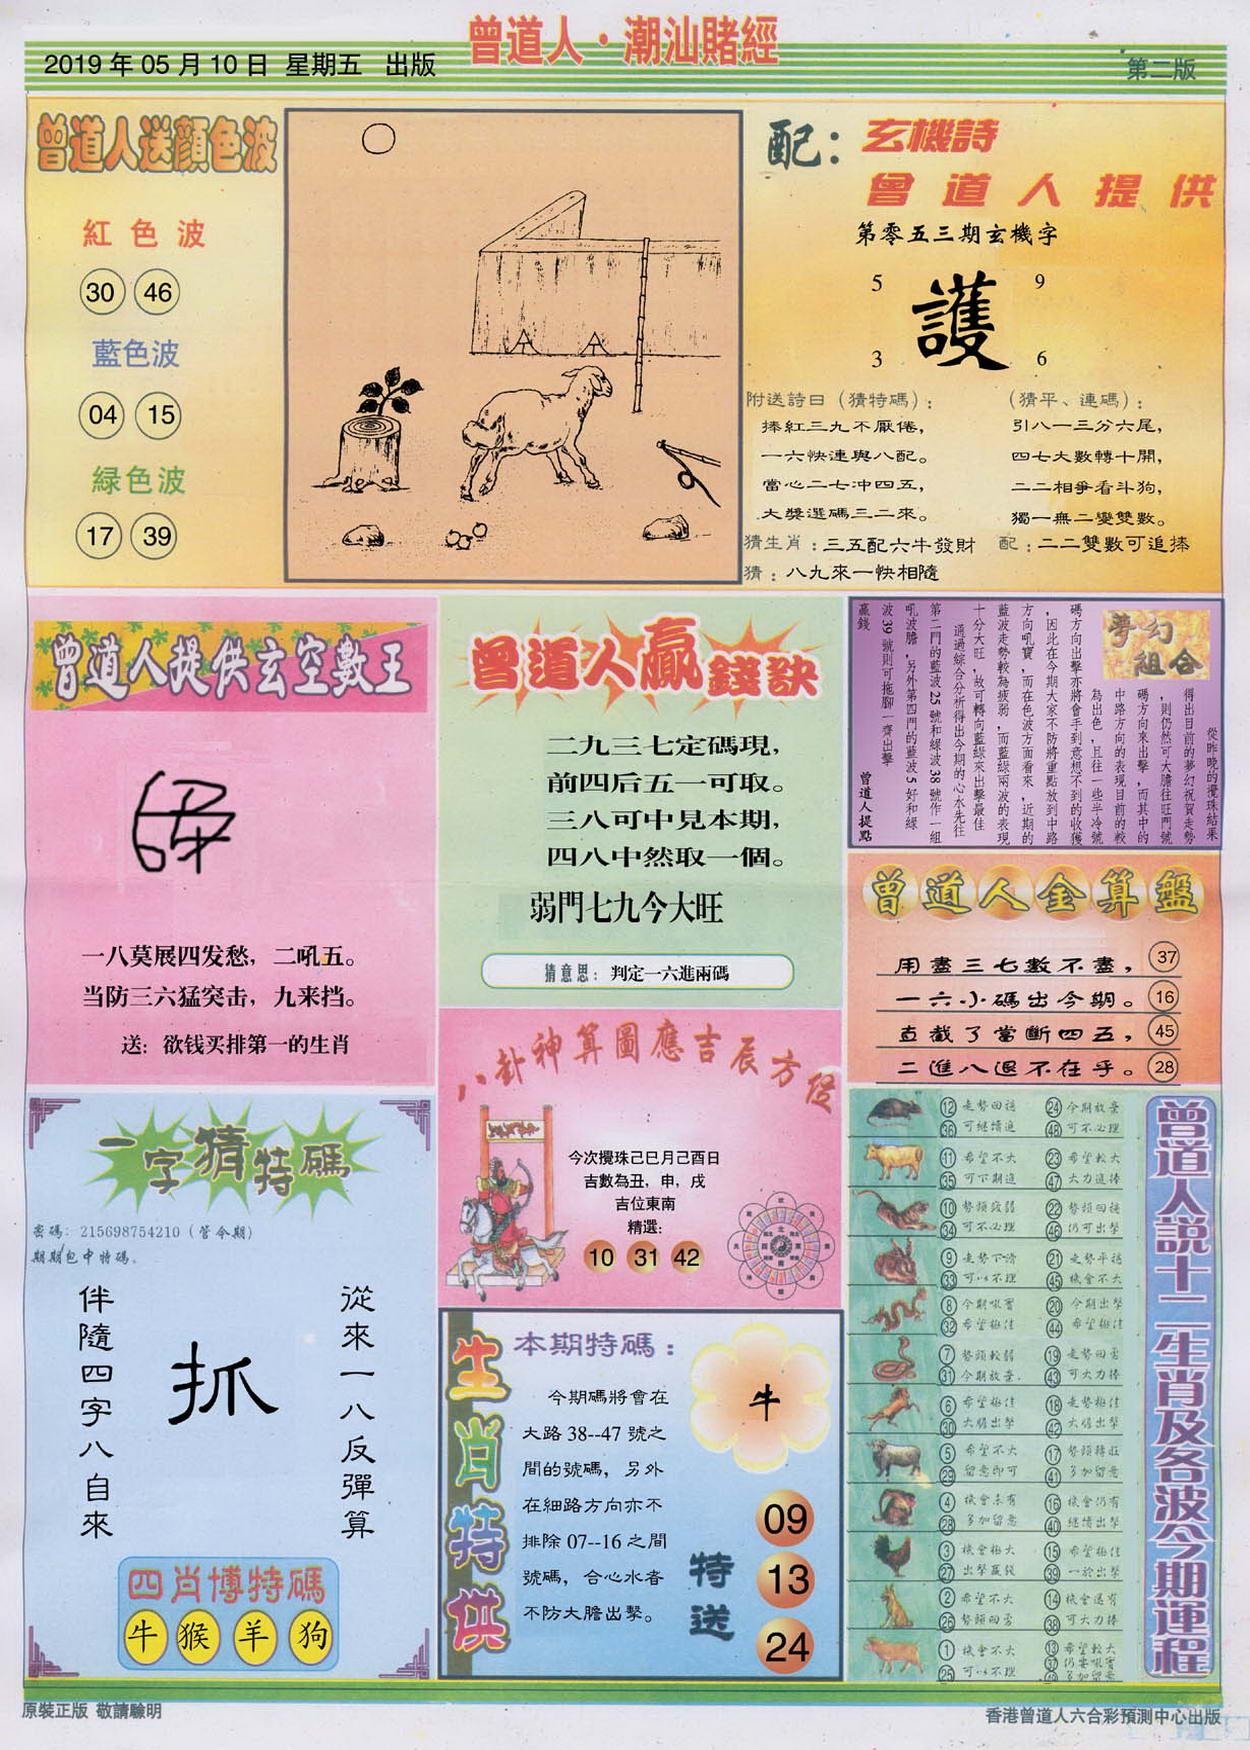 曾道人·潮汕賭經
2019年05月10日 星期五 出版
第二版
曾道人送顏色波
紅色波
30 46
藍色波
04 15
緑色波
17 39
配：玄機詩
曾道人提供
第零五三期玄機字
5 9
護
3 6
附送詩曰（猜特碼）：
捧紅三九不厭倦，
一六快連與八配。
當心二七冲四五，
大獎選碼三二來。
（猜平、連碼）：
引八一三分六尾，
四七大數轉十開，
二二相爭看斗狗，
獨一無二變雙數。
猜生肖：三五配六牛發財 配：二二雙數可追捧
猜：八九來一快相隨
曾道人提供玄空數王
一八莫展四发愁，二吼五。
当防三六猛突击，九来挡。
送：欲钱买排第一的生肖
曾道人贏錢訣
二九三七定碼現，
前四后五一可取。
三八可中見本期，
四八中然取一個。
弱門七九今大旺
猜意思：判定一六進兩碼
夢幻組合
從昨晚的攪珠結果
得出目前的夢幻祝賀走勢
，則仍然可大膽往旺門號
碼方向來出擊，而其中的
中路方向的表現目前的較
為出色，且往一些半冷號
碼方向出擊亦將會手到意想不到的收獲
，因此在今期大家不防將重點放到中路
方向吼寶，而在色波方面看來，近期的
藍波走勢較為疲弱，而藍綠兩波的表現
十分大旺，故可轉向藍綠來出擊最佳
通過綜合分析得出今期的心水先往
第二門的藍波25號和綠波38號作一組
吼波膽，另外第四門的藍波5好和綠
波39號則可拖腳一齊出擊
贏錢
曾道人提點
曾道人金算盤
用盡三七數不盡，37
一六小碼出今期。16
直截了當斷四五，45
二進八退不在乎。28
八卦神算圖應吉辰方位
今次攪珠己巳月己酉日
吉數為丑，申，戌
吉位東南
精選：
10 31 42
一字猜特碼
密碼：215698754210（管今期）
期期包中特碼。
從來一八反彈算
抓
伴隨四字八自來
四肖博特碼
牛 猴 羊 狗
生肖特供
本期特碼：
今期碼將會在
大路38--47號之
間的號碼，另外
在細路方向亦不
排除07--16之間
號碼，合心水者
不防大膽出擊。
牛
特送
09
13
24
曾道人説十二生肖及各波今期運程
12 走勢回穩 24 今期放棄
36 可繼續追 48 可不必理
11 希望不大 23 希望較大
35 可下期追 47 大力追捧
10 勢頭疲弱 22 勢頭回穩
34 可不必理 46 仍可出擊
9 走勢下滑 21 走勢平穩
33 可以不理 45 機會不大
8 今期吼寶 20 今期出擊
32 希望極佳 44 希望極佳
7 勢頭較弱 19 走勢回勇
31 今期放棄. 43 可大力捧
6 希望極佳 18 走勢極佳
30 大膽出擊 42 大膽出擊
5 希望不大 17 勢頭轉旺
29 留意即可 41 多加留意
4 機會未有 16 機會仍有
28 多加留意 40 繼續出擊
3 機會極大 15 希望極佳
27 出擊贏錢 39 一於出擊
2 希望不大 14 機會還有
26 勢頭回勇 38 可大力捧
1 機會不大 13 希望較大
25 可以不理 37 仍要吼實
49 多加留意
原裝正版 敬請驗明
香港曾道人六合彩預測中心出版